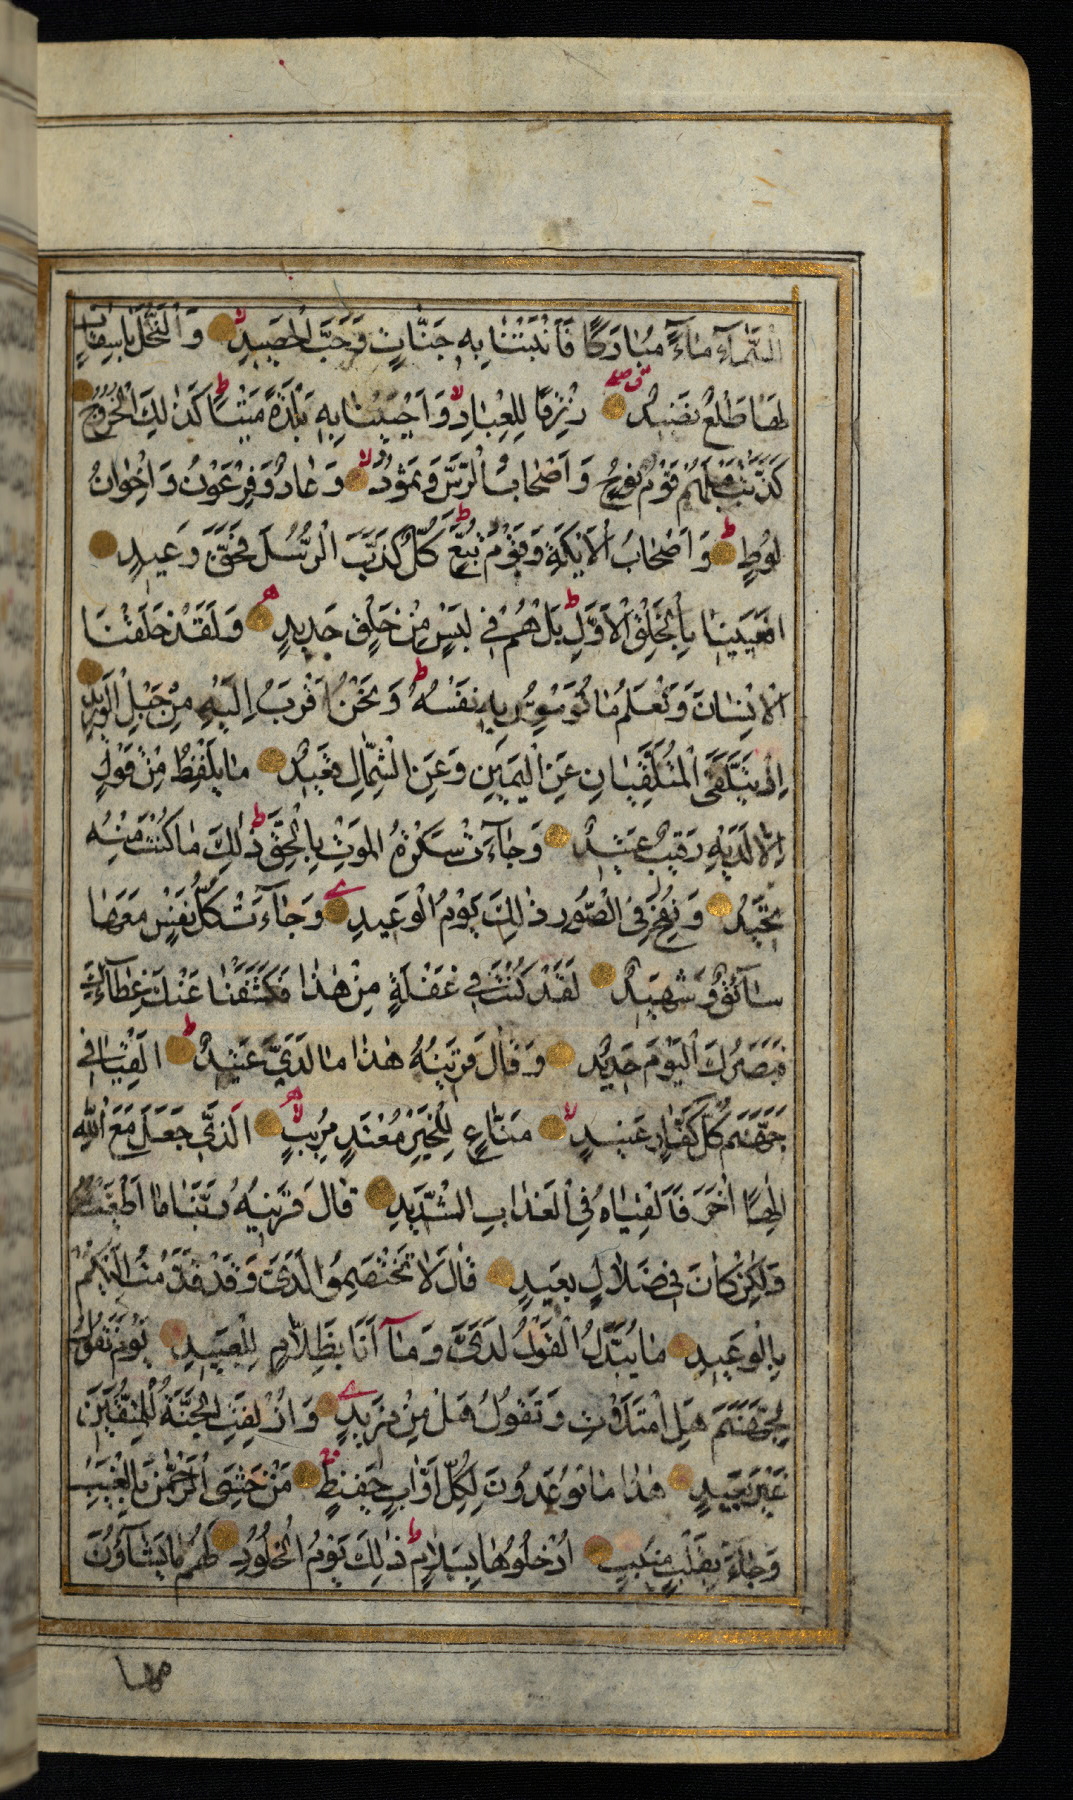 السَّمَآءِ مَآءً مُبَارَكًا فَاَنْبَتْنَا بِهِ جَنَّاتٍ وَحَبَّ الْحَصِيدِ وَالنَّخْلَ بَاسِقَاتٍ
لَهَا طَلْعٌ نَضِيدٌ رِزْقًا لِلْعِبَادِ وَاَحْيَيْنَا بِهِ بَلْدَةً مَيْتًا كَذٰلِكَ الْخُرُوجُ
كَذَّبَتْ قَبْلَهُمْ قَوْمُ نُوحٍ وَاَصْحَابُ الرَّسِّ وَثَمُودُ وَعَادٌ وَفِرْعَوْنُ وَاِخْوَانُ
لُوطٍ وَاَصْحَابُ الْاَيْكَةِ وَقَوْمُ تُبَّعٍ كُلٌّ كَذَّبَ الرُّسُلَ فَحَقَّ وَعِيدِ
اَفَعَيِينَا بِالْخَلْقِ الْاَوَّلِ بَلْ هُمْ فِي لَبْسٍ مِنْ خَلْقٍ جَدِيدٍ وَلَقَدْ خَلَقْنَا
الْاِنْسَانَ وَنَعْلَمُ مَا تُوَسْوِسُ بِهِ نَفْسُهُ وَنَحْنُ اَقْرَبُ اِلَيْهِ مِنْ حَبْلِ الْوَرِيدِ
اِذْ يَتَلَقَّى الْمُتَلَقِّيَانِ عَنِ الْيَمِينِ وَعَنِ الشِّمَالِ قَعِيدٌ مَا يَلْفِظُ مِنْ قَوْلٍ
اِلَّا لَدَيْهِ رَقِيبٌ عَتِيدٌ وَجَآءَتْ سَكْرَةُ الْمَوْتِ بِالْحَقِّ ذٰلِكَ مَا كُنْتَ مِنْهُ
تَحِيدُ وَنُفِخَ فِي الصُّورِ ذٰلِكَ يَوْمُ الْوَعِيدِ وَجَآءَتْ كُلُّ نَفْسٍ مَعَهَا
سَآئِقٌ وَشَهِيدٌ لَقَدْ كُنْتَ فِي غَفْلَةٍ مِنْ هٰذَا فَكَشَفْنَا عَنْكَ غِطَآءَكَ
فَبَصَرُكَ الْيَوْمَ حَدِيدٌ وَقَالَ قَرِينُهُ هٰذَا مَا لَدَيَّ عَتِيدٌ اَلْقِيَا فِي
جَهَنَّمَ كُلَّ كَفَّارٍ عَنِيدٍ مَنَّاعٍ لِلْخَيْرِ مُعْتَدٍ مُرِيبٍ الَّذِي جَعَلَ مَعَ اللّٰهِ
اِلٰهًا اٰخَرَ فَاَلْقِيَاهُ فِي الْعَذَابِ الشَّدِيدِ قَالَ قَرِينُهُ رَبَّنَا مَا اَطْغَيْتُهُ
وَلٰكِنْ كَانَ فِي ضَلَالٍ بَعِيدٍ قَالَ لَا تَخْتَصِمُوا لَدَيَّ وَقَدْ قَدَّمْتُ اِلَيْكُمْ
بِالْوَعِيدِ مَا يُبَدَّلُ الْقَوْلُ لَدَيَّ وَمَآ اَنَا بِظَلَّامٍ لِلْعَبِيدِ يَوْمَ نَقُولُ
لِجَهَنَّمَ هَلِ امْتَلَاْتِ وَتَقُولُ هَلْ مِنْ مَزِيدٍ وَاُزْلِفَتِ الْجَنَّةُ لِلْمُتَّقِينَ
غَيْرَ بَعِيدٍ هٰذَا مَا تُوعَدُونَ لِكُلِّ اَوَّابٍ حَفِيظٍ مَنْ خَشِيَ الرَّحْمٰنَ بِالْغَيْبِ
وَجَآءَ بِقَلْبٍ مُنِيبٍ اُدْخُلُوهَا بِسَلَامٍ ذٰلِكَ يَوْمُ الْخُلُودِ لَهُمْ مَا يَشَآؤُنَ